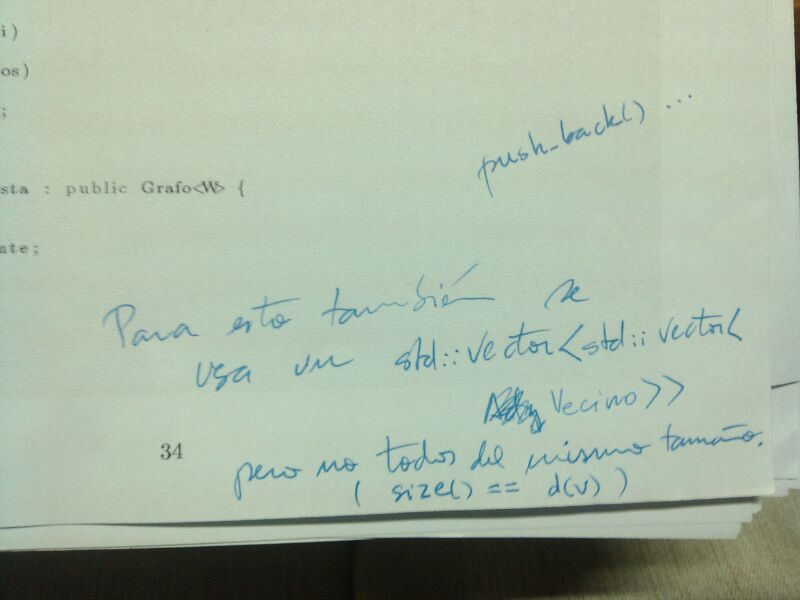 i)
os)
;
push_back() ...
sta : public Grafo<W> {
nte;
Para esto también se
usa un std::vector<std::vector<
Vecino>>
34
pero no todos del mismo tamaño.
( size() == d(v) )